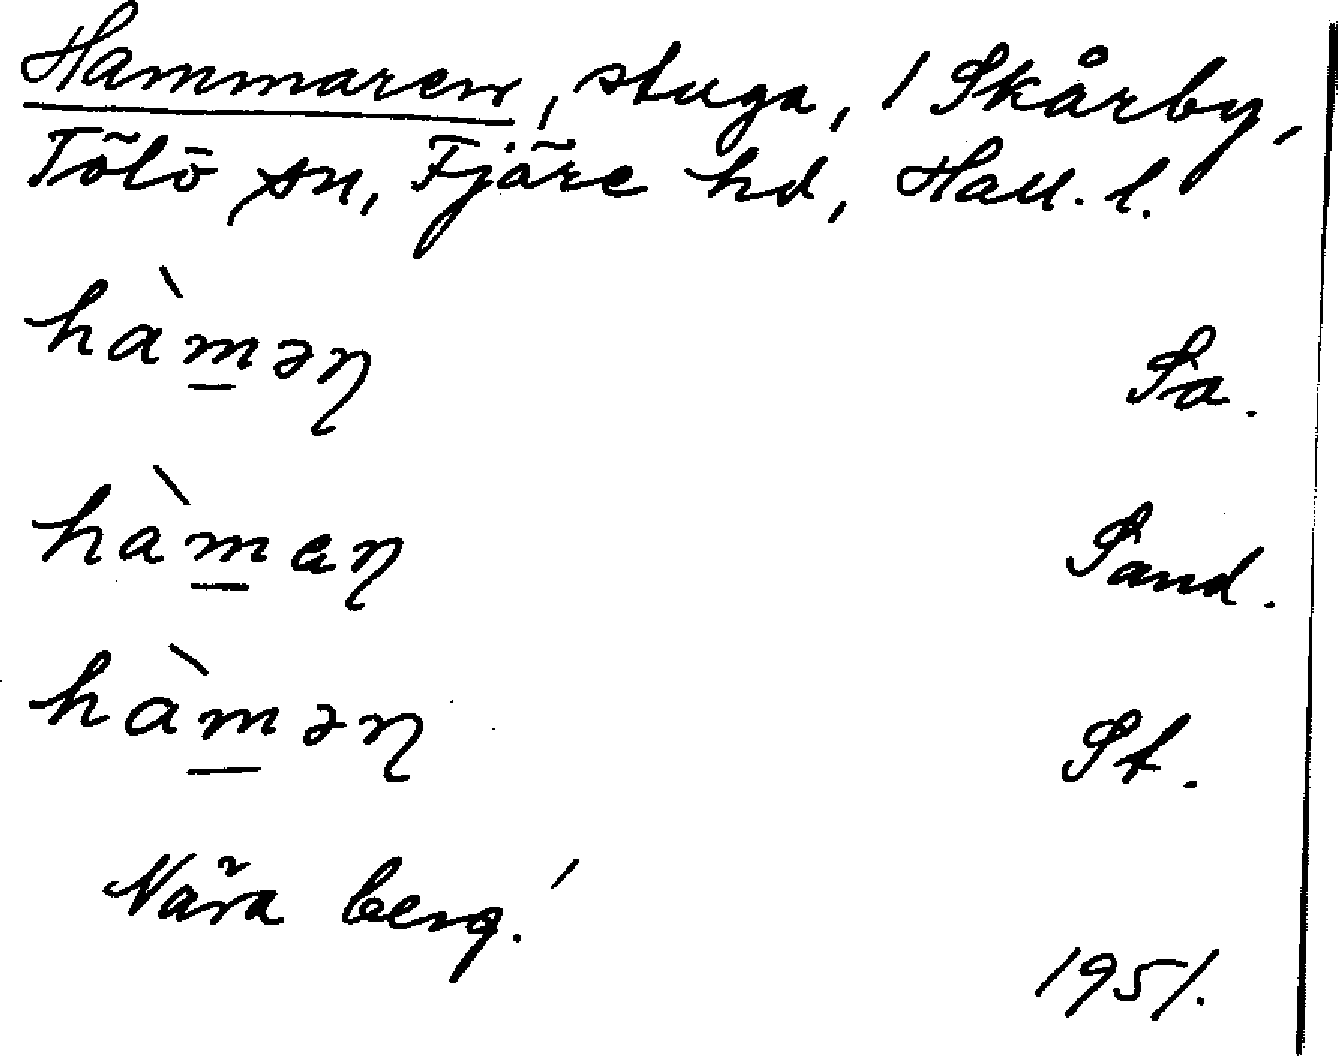 Hammaren, stuga, 1 Skårby,
Tölö sn, Fjäre hd, Hall. l.
hàm̲əɳ Sa.
hàm̲eɳ Sand.
hàm̲əɳ St.
Nära berg!
1951.